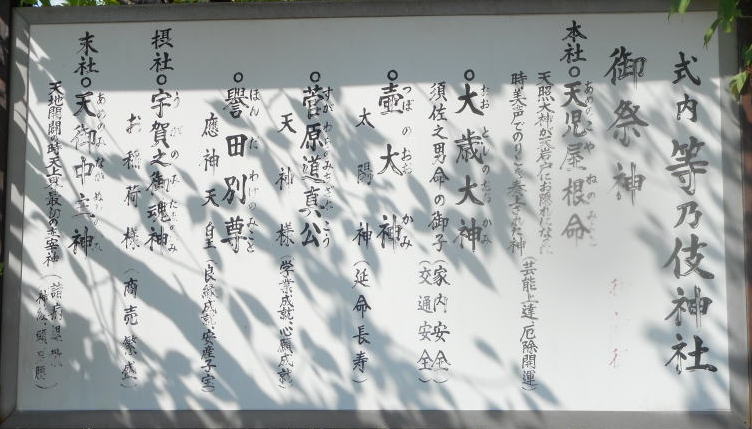 式内 等乃伎神社
御祭神
本社○天児屋根命
天照大神が天岩戸にお隠れになった
時美声でのりとを奏上された神(芸能上達、厄除開運)
○大歳大神
須佐之男命の御子(家内安全)(交通安全)
○壺大神
太陽神(延命長寿)
○菅原道真公
天神様(学業成就、心願成就)
○誉田別尊
應神天皇(良縁成就、安産子宝)
摂社○宇賀之御魂神
お稲荷様(商売繁盛)
末社○天御中主神
天地開闢の時天上